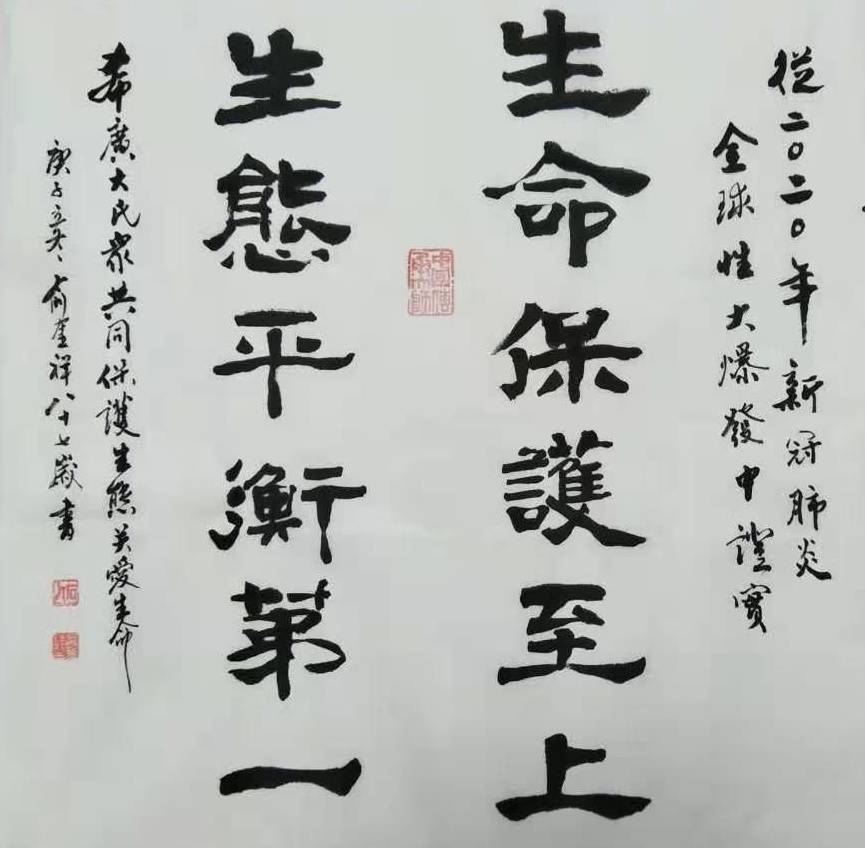 從二〇二〇年新冠肺炎
全球性大爆發中證實
生命保護至上
生態平衡第一
希廣大民眾共同保護生態关愛生命
庚子立冬俞奎祥八十七歲書